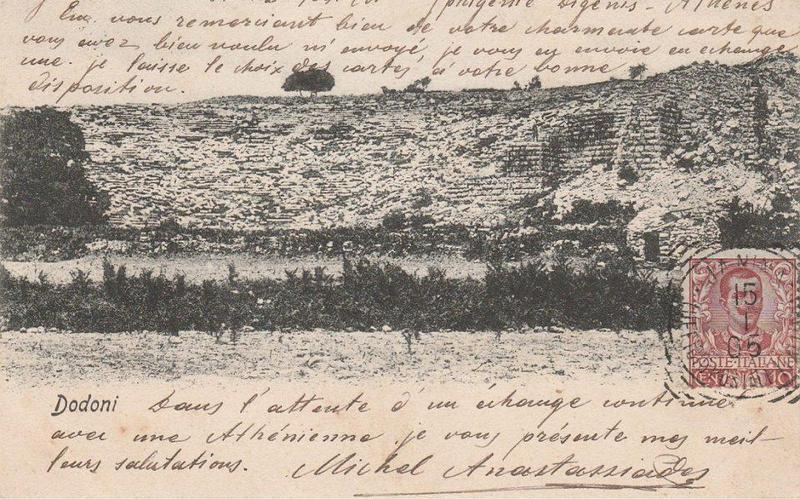 Iphigenie Digenis - Athènes
En vous remerciant bien de votre charmante carte que
vous avez bien voulu m'envoyé, je vous en envoie en échange
une. je laisse le choix des cartes, à votre bonne
disposition.
15
1
05
POSTE-ITALIANE
Dodoni
Dans l'attente d'un échange continue
avec une Athénienne je vous présente mes meil-
leurs salutations.
Michel Anastassiades